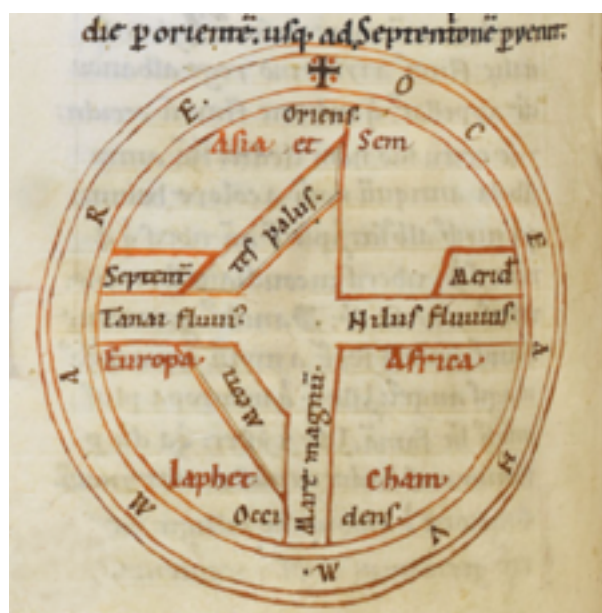 die p oriente᷑. usq̢ ad Septent᷑onē pvenit.
MARE OCEANVM
Oriens
Asia et Sem
tes palus.
Septent᷑
Merid᷑
Tanai fluui᷒
Nilus fluuius.
Europa.
Africa.
Meoti
Mare magnū.
Iaphet
Cham.
Occi dens.